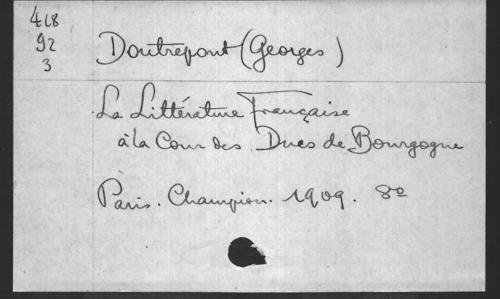 428
92
3
Doutrepont (Georges)
La Littérature Française
à la Cour des Ducs de Bourgogne
Paris. Champion. 1909. 8º